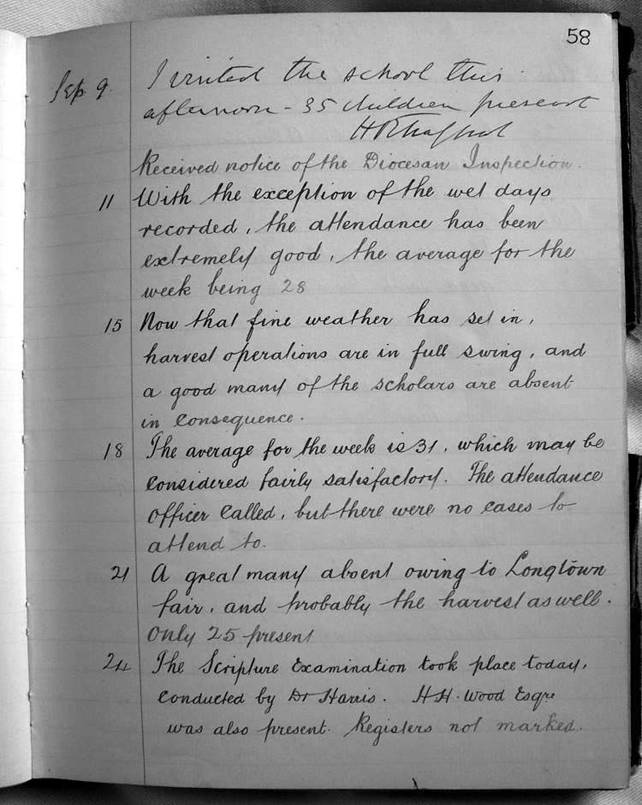 58
Sep 9 I visited the school this
afternoon - 35 children present
Received notice of the Diocesan Inspection.
11 With the exception of the wet days
recorded, the attendance has been
extremely good, the average for the
week being 28
15 Now that fine weather has set in,
harvest operations are in full swing, and
a good many of the scholars are absent
in consequence.
18 The average for the week is 31, which may be
considered fairly satisfactory. The attendance
officer called, but there were no cases to
attend to.
21 A great many absent owing to Longtown
fair, and probably the harvest as well.
Only 25 present
24 The Scripture Examination took place today,
conducted by Dr Harris. H.H. Wood Esqre
was also present. Registers not marked.